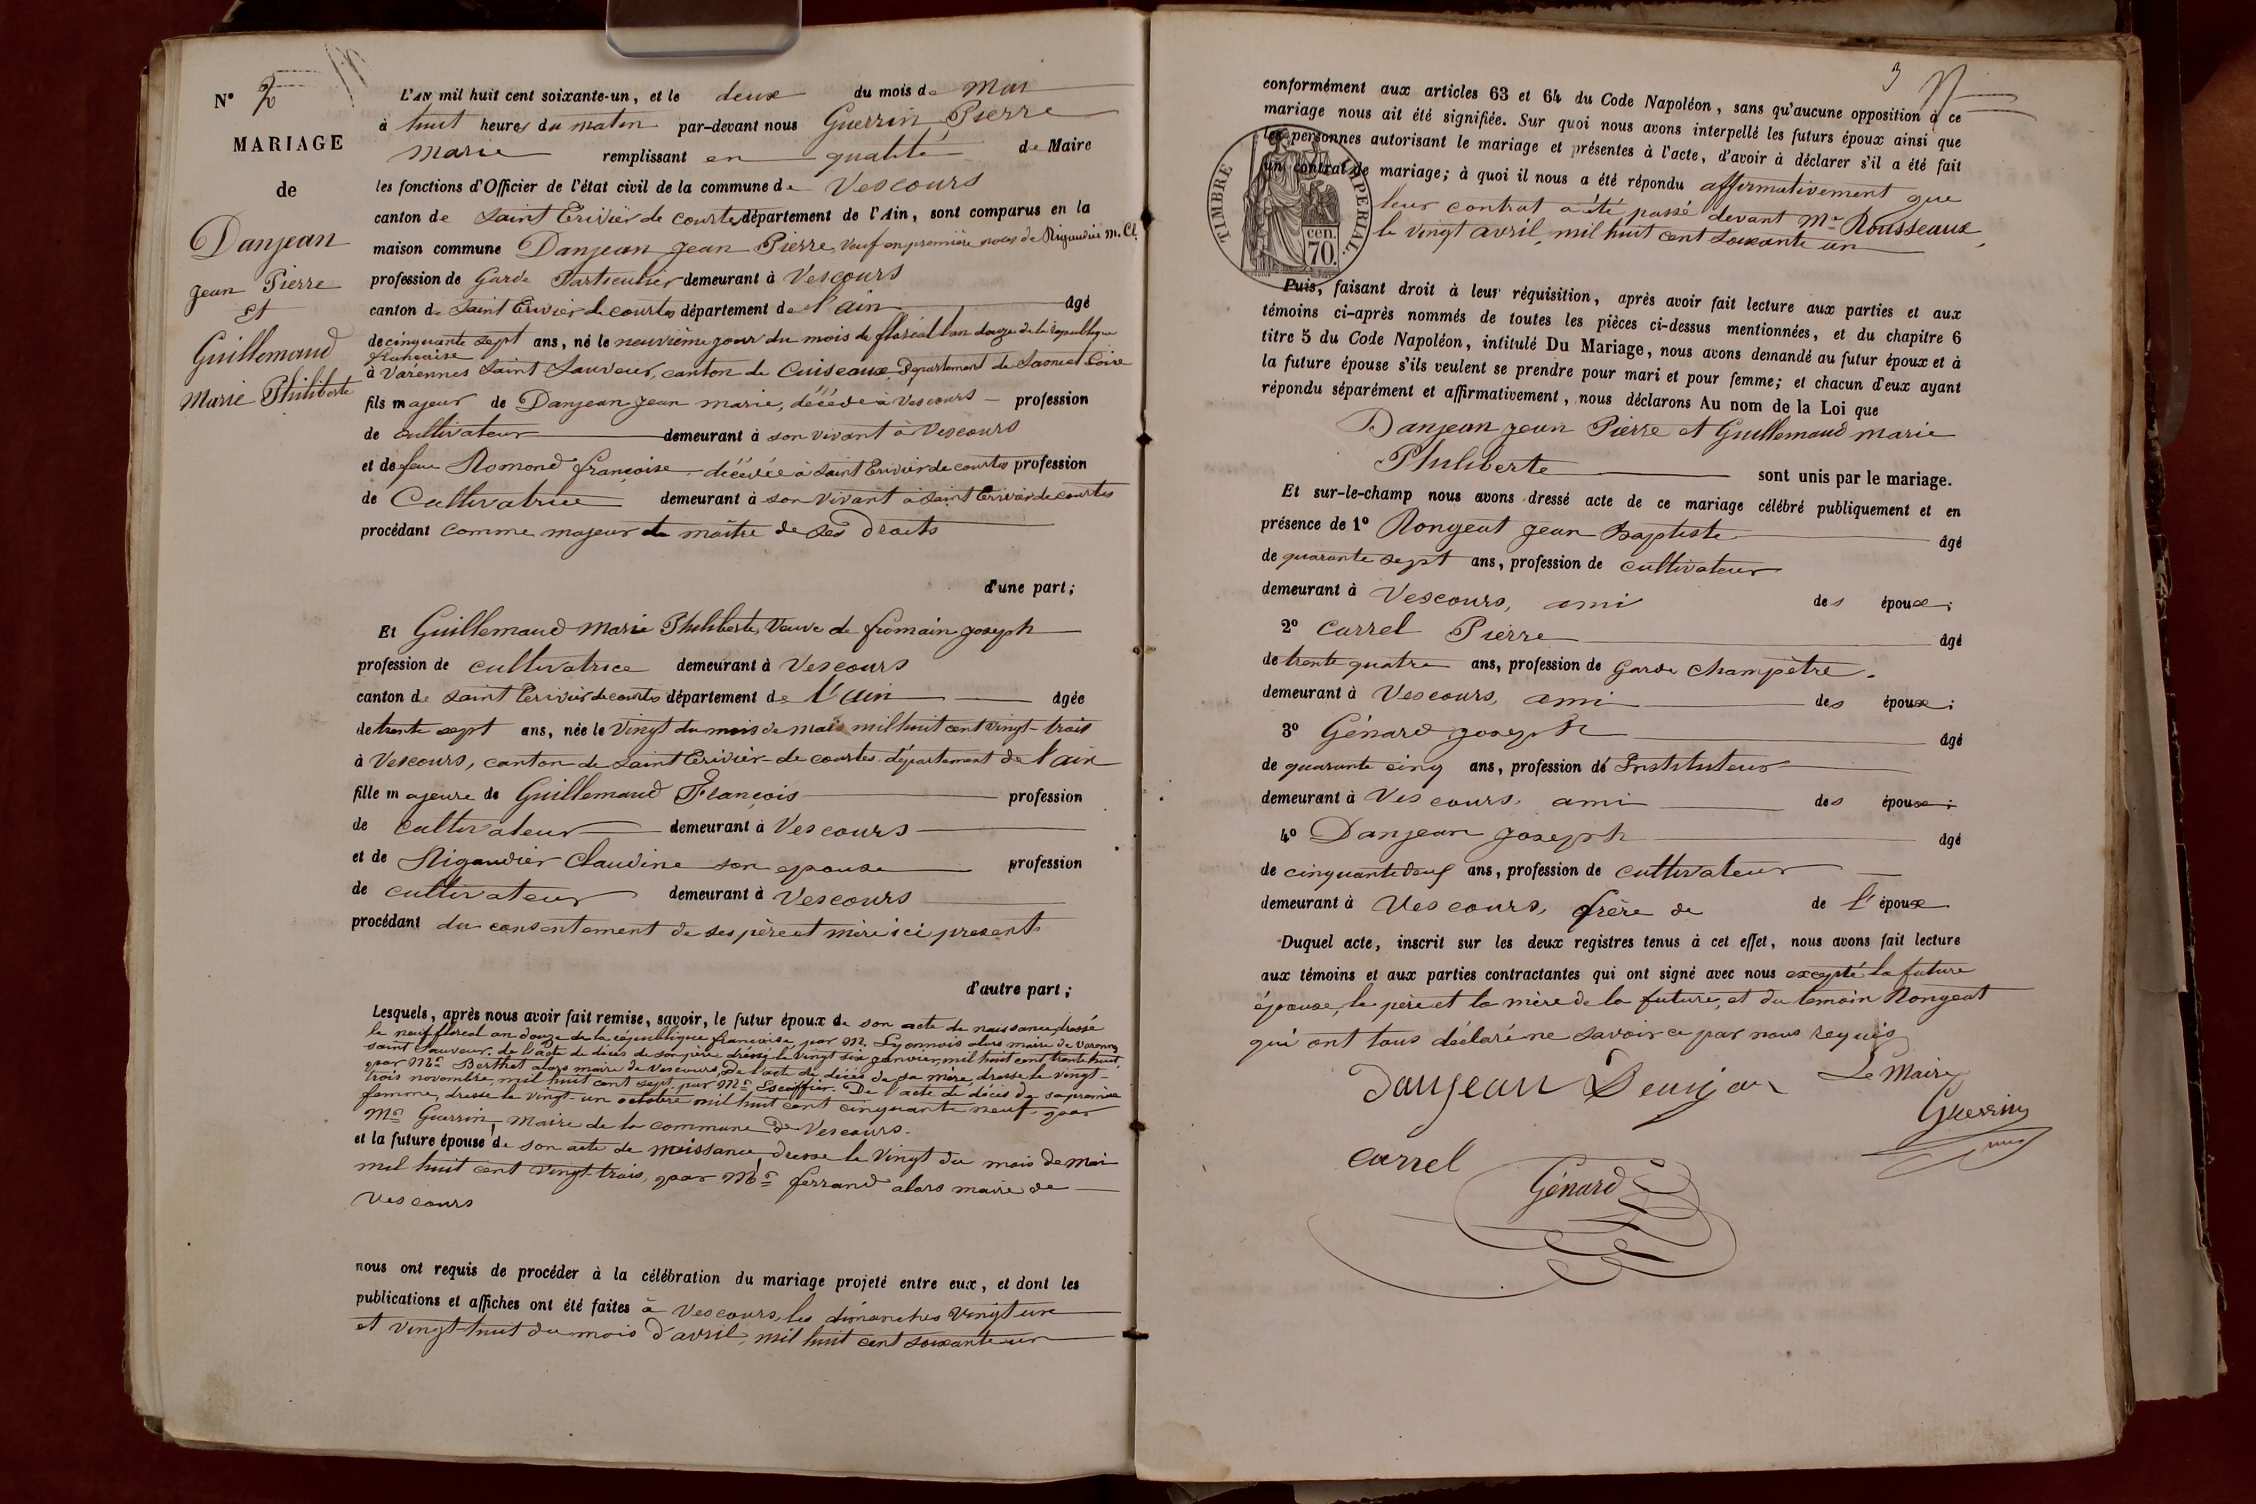 N° 2
MARIAGE
de
Danjean
Jean Pierre
et
Guillemaud
Marie Philiberte
L'AN mil huit cent soixante-un, et le deux du mois de Mai
à huit heures du matin par-devant nous Guerrin Pierre
Marie remplissant en qualité de Maire
les fonctions d'Officier de l'état civil de la commune de Vescours
canton de Saint Trivier de Courtes département de l'Ain, sont comparus en la
maison commune Danjean Jean Pierre, veuf en première noces de Rigaudier M. Cl.
profession de Garde Particulier demeurant à Vescours
canton de Saint Trivier de Courtes département de l'ain âgé
de cinquante sept ans, né le neuvième jour du mois de floréal l'an douze de la république
française
à Varennes Saint Sauveur, canton de Cuiseaux Département de Saone et Loire
fils majeur de Danjean Jean Marie, décédé à Vescours profession
de cultivateur demeurant à son vivant à Vescours
et de feue Romond françoise décédée à Saint Trivier de Courtes profession
de Cultivatrice demeurant à son vivant à Saint Trivier de courtes
procédant comme majeur et maître de ses droits
d'une part;
Et Guillemaud Marie Philiberte, Veuve de fromain joseph
profession de cultivatrice demeurant à Vescours
canton de Saint Trivier de courtes département de l'ain âgée
de trente sept ans, née le vingt du mois de mai mil huit cent vingt-trois
à Vescours, canton de Saint Trivier de courtes département de l'ain
fille majeure de Guillemaud François profession
de cultivateur demeurant à Vescours
et de Rigaudier Claudine son epouse profession
de cultivateur demeurant à Vescours
procédant du consentement de ses père et mère ici présents
d'autre part;
Lesquels, après nous avoir fait remise, savoir, le futur époux de son acte de naissance, dressé
le neuf floréal an douze de la république francaise, par M. Lyonnois alors maire de Varennes
saint Sauveur. de l'acte de décès de son père dressé le vingt six janvier, mil huit cent trente huit,
par Mr. Berthet alors maire de Vescours, De l'acte de décès de sa mère, dressé le vingt-
trois novembre, mil huit cent sept par Mr. Escoffier. De l'acte de décès de sa première
femme, dressé le vingt un octobre mil huit cent cinquante neuf par
Mr. Guerrin, Maire de la commune de Vescours.
et la future épouse de son acte de naissance, dressé le vingt du mois de mai
mil huit cent vingt-trois, par Mr. ferrand alors maire de
Vescours
nous ont requis de procéder à la célébration du mariage projeté entre eux, et dont les
publications et affiches ont été faites à Vescours, les dimanches vingt un
et vingt-huit du mois d'avril, mil huit cent soixante un
3
conformément aux articles 63 et 64 du Code Napoléon, sans qu'aucune opposition à ce
mariage nous ait été signifiée. Sur quoi nous avons interpellé les futurs époux ainsi que
les personnes autorisant le mariage et présentes à l'acte, d'avoir à déclarer s'il a été fait
un contrat de mariage; à quoi il nous a été répondu affirmativement que
leur contrat a été passé devant Me. Rousseaux,
le vingt avril, mil huit cent soixante un
TIMBRE IMPERIAL.
cen.
70.
Puis, faisant droit à leur réquisition, après avoir fait lecture aux parties et aux
témoins ci-après nommés de toutes les pièces ci-dessus mentionnées, et du chapitre 6
titre 5 du Code Napoléon, intitulé Du Mariage, nous avons demandé au futur époux et à
la future épouse s'ils veulent se prendre pour mari et pour femme; et chacun d'eux ayant
répondu séparément et affirmativement, nous déclarons Au nom de la Loi que
Danjean Jean Pierre et Guillemaud Marie
Philiberte sont unis par le mariage.
Et sur-le-champ nous avons dressé acte de ce mariage célébré publiquement et en
présence de 1° Rongeat Jean Baptiste âgé
de quarante sept ans, profession de cultivateur
demeurant à Vescours, ami des époux;
2° Carrel Pierre âgé
de trente quatre ans, profession de Garde Champêtre.
demeurant à Vescours, ami des époux;
3° Génard joseph âgé
de quarante cinq ans, profession de Instituteur
demeurant à Vescours, ami des époux;
4° Danjean joseph âgé
de cinquante deux ans, profession de cultivateur
demeurant à Vescours, frère de de l'époux
Duquel acte, inscrit sur les deux registres tenus à cet effet, nous avons fait lecture
aux témoins et aux parties contractantes qui ont signé avec nous excepté la future
épouse, le père et la mère de la future, et du témoin Rongeat
qui ont tous déclaré ne savoir ce par nous requis
Danjean Denijan Le Maire
Guerrin
Carrel
Génard